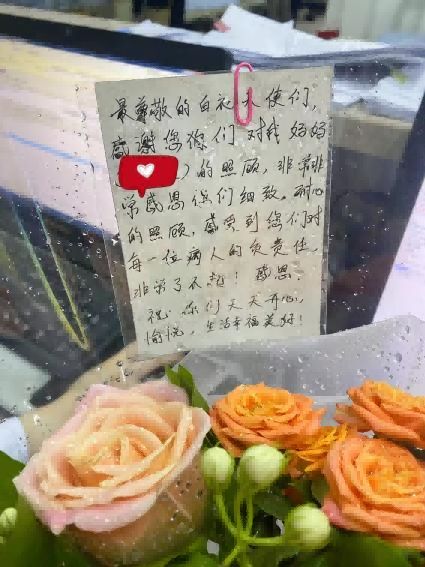 最尊敬的白衣天使们,
感谢您你们对我妈妈
)的照顾,非常非
常感恩你们细致,耐心
的照顾,感受到您们对
每一位病人的负责任,
非常了不起!感恩.
祝你们天天开心,
愉悦,生活幸福美好!